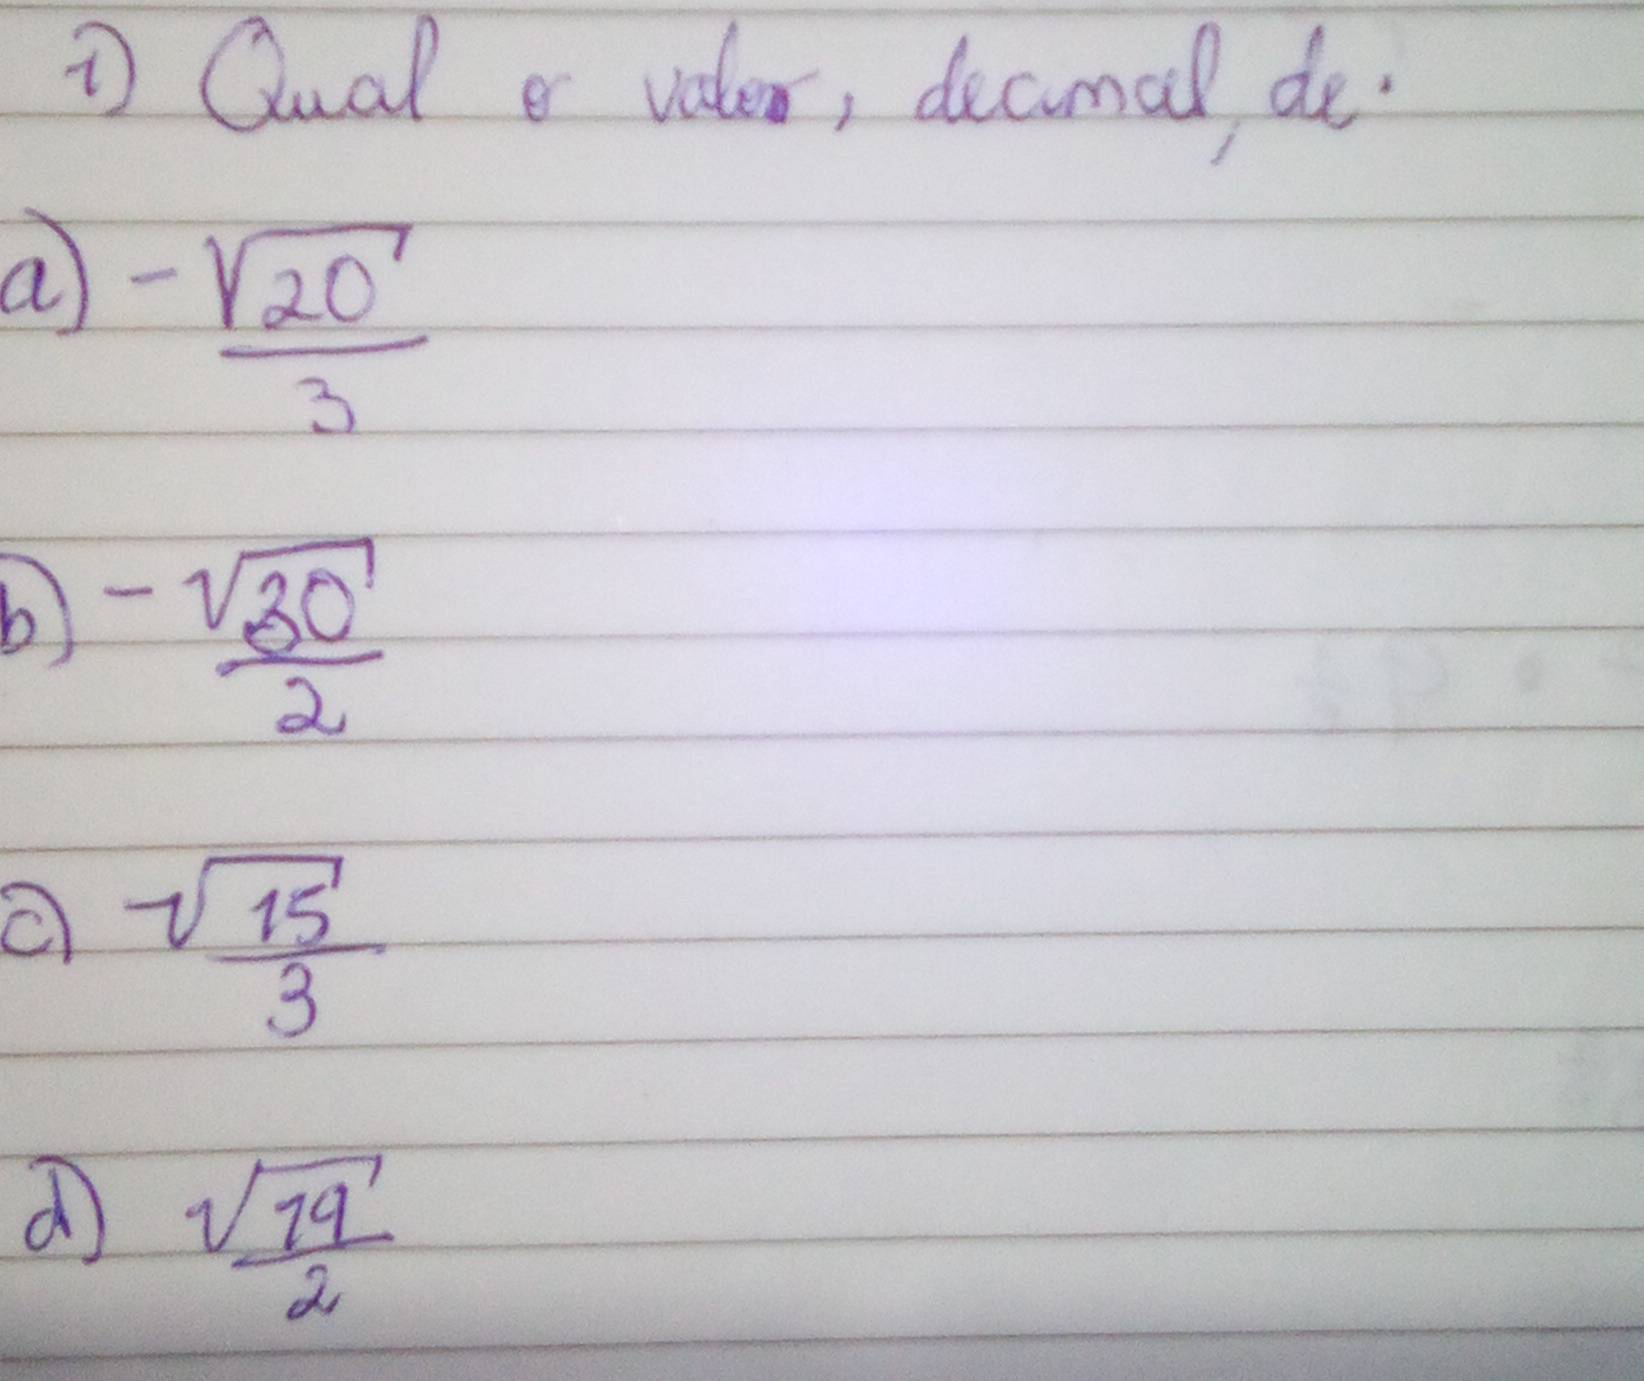 1) Qual o valor, decimal, de.
a) -√20
3
b) -√30
2
c) -√15
3
d) √19
2